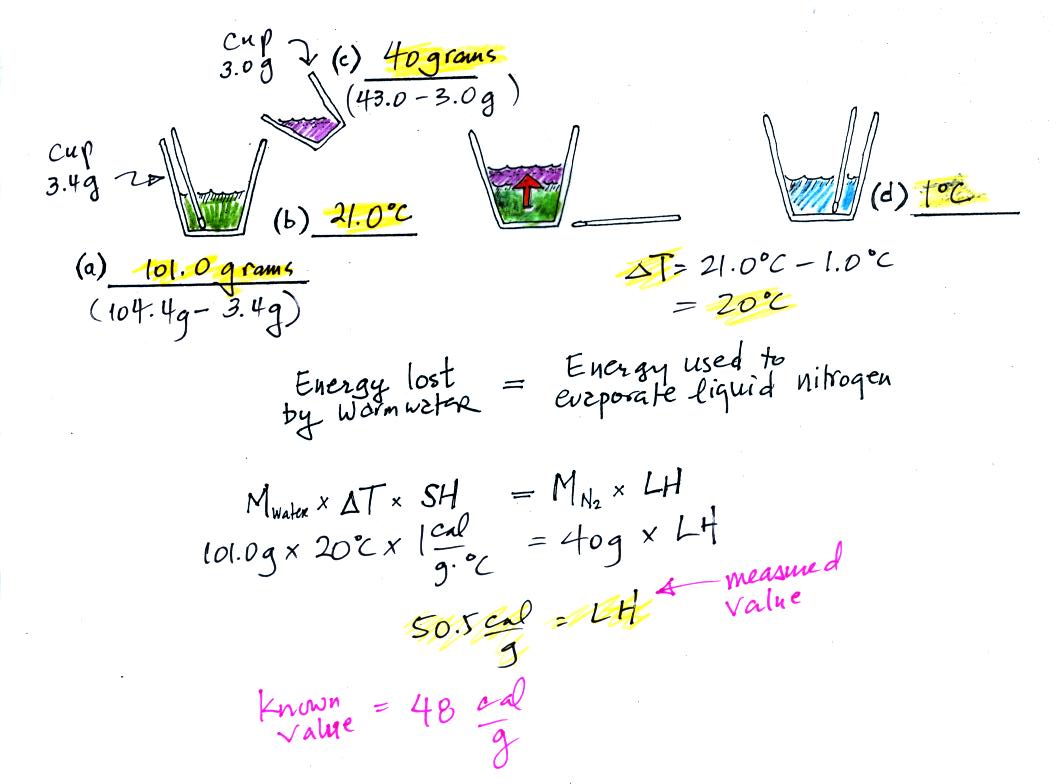 cup
3.0g
(c) 40 grams
(43.0 - 3.0g)
cup
3.4g
(b) 21.0°C
(d) 1°C
(a) 101.0 grams
(104.4g - 3.4g)
ΔT = 21.0°C - 1.0°C
= 20°C
Energy lost
by warm water
=
Energy used to
evaporate liquid nitrogen
M water × ΔT × SH = M N2 × LH
101.0g × 20°C × 1 cal/g·°C = 40g × LH
50.5 cal/g = LH
measured
value
Known
value
= 48 cal/g